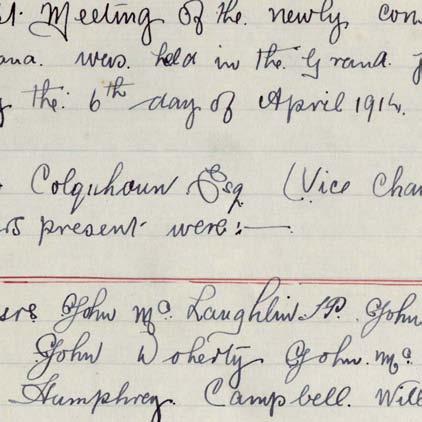 st. Meeting of the newly con
ana. was. held in the Grand J
y the 6th day of April 1914.
Colquhoun Esq (Vice Chai
rs present were:—
srs John Mc. Laughlin J.P. John
John Doherty John. Mc.
Humphrey Campbell. Will